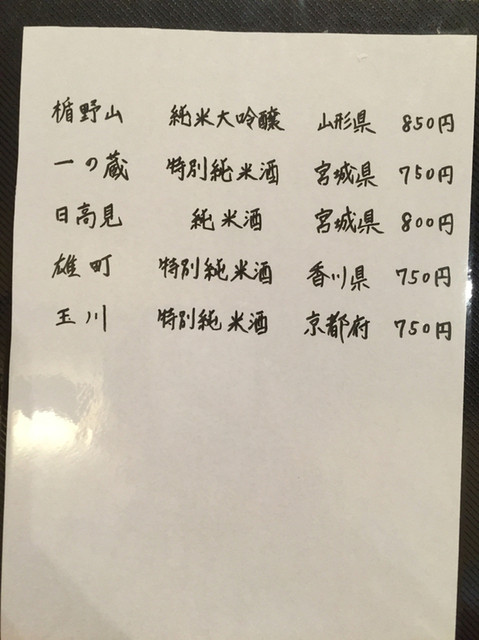 楯野山 純米大吟醸 山形県 850円
一の蔵 特別純米酒 宮城県 750円
日高見 純米酒 宮城県 800円
雄町 特別純米酒 香川県 750円
玉川 特別純米酒 京都府 750円